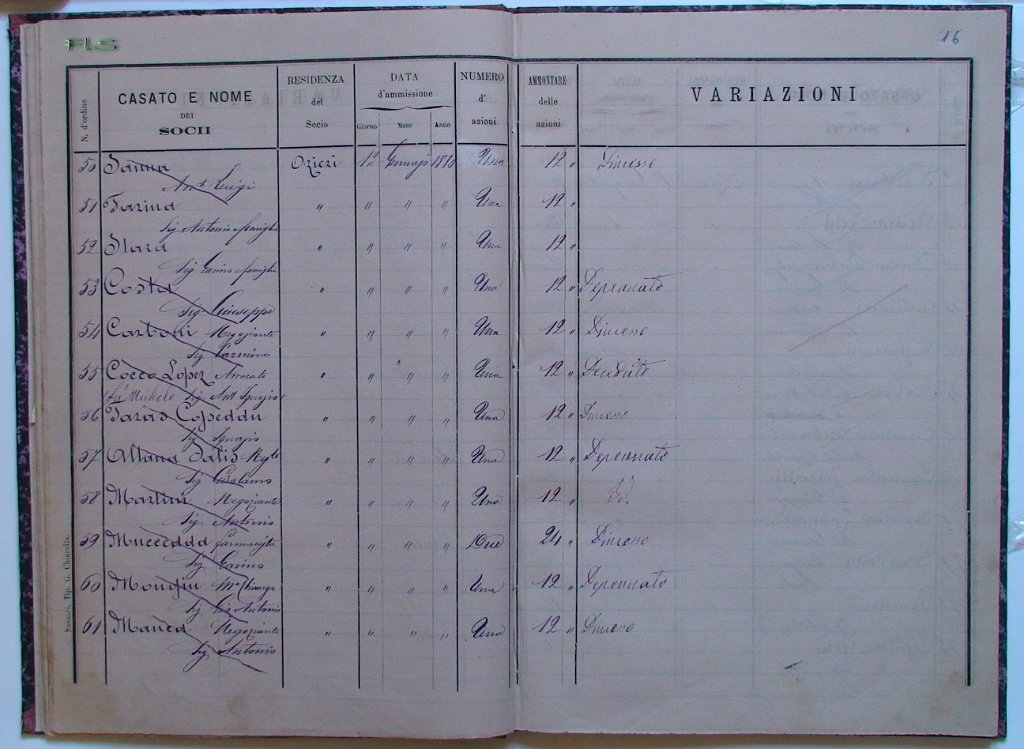 FLS
16
N. d'ordine
CASATO E NOME
DEI
SOCII
RESIDENZA
del
Socio
DATA
d'ammissione
Giorno Mese Anno
NUMERO
d'
azioni
AMMONTARE
delle
azioni
VARIAZIONI
50 Sanna Ozieri 12 Gennajo Una 12 " Dimesso
Ant. Luigi
51 Farina " " " " Una 12 "
Sig. Antonio
52 " " " " Una 12 "
Sig.
53 Costa " " " " Una 12 " Depennato
Sig. Giuseppe
54 Carboni Negoziante " " " " Una 12 " Dimesso
Sig.
55 Cocco Lopez Avvocato " " " " Una 12 " Decaduto
Michele Sig. Ant. Ignazio
56 Copeddu " " " " Una 12 " Dimesso
Sig. Ignazio
57 " " " " Una 12 " Depennato
Sig.
58 Martini Negoziante " " " " Una 12 " Id.
Sig. Antonio
59 Farmacista " " " " Due 24 " Dimesso
Sig.
60 " " " " Una 12 " Depennato
Sig. Antonio
61 Manca Negoziante " " " " Una 12 " Dimesso
Sig. Antonio
Sassari, Tip. G. Chiarella.